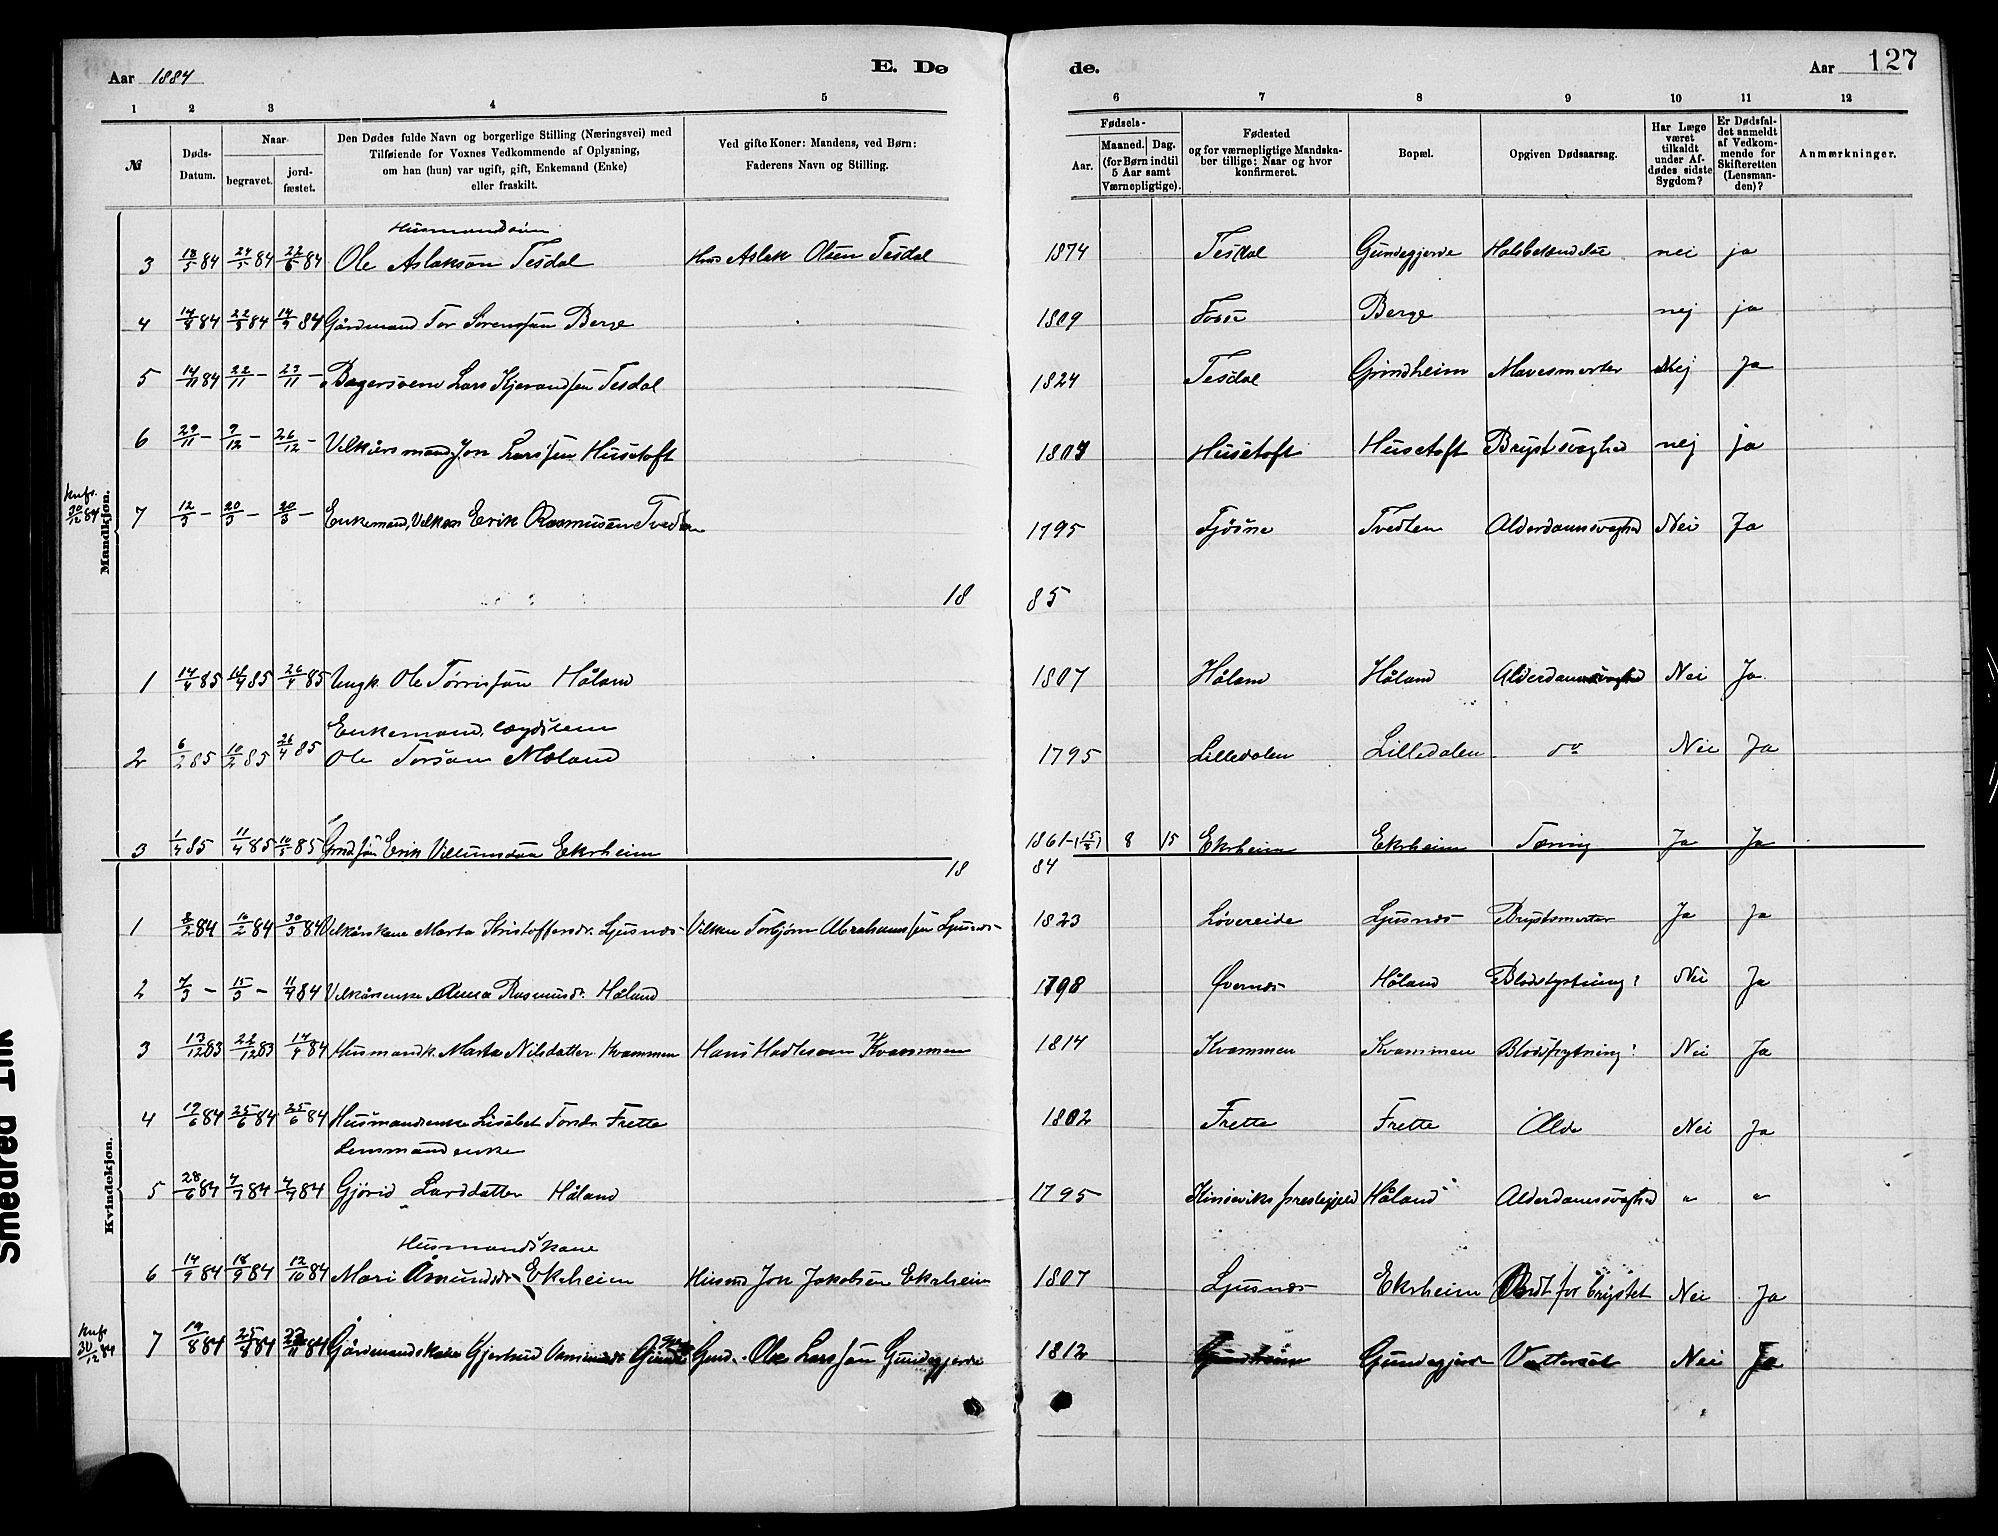 Aar 1884
E. Dø
de.
Aar
127
1 2 3 4 5 6 7 8 9 10 11 12
№
Døds-Datum.
Naar
begravet.
jordfæstet.
Den Dødes fulde Navn og borgerlige Stilling (Næringsvei) med
Tilføiende for Voxnes Vedkommende af Oplysning,
om han (hun) var ugift, gift, Enkemand (Enke)
eller fraskilt.
Ved gifte Koner: Mandens, ved Børn:
Faderens Navn og Stilling.
Fødsels-
Aar.
Maaned. Dag.
(for Børn indtil
5 Aar samt
Værnepligtige).
Fødested
og for værnepligtige Mandska-
ber tillige: Naar og hvor
konfirmeret.
Bopæl.
Opgiven Dødsaarsag.
Har Læge
været
tilkaldt
under Af-
dødes sidste
Sygdom?
Er Dødsfal-
det anmeldt
af Vedkom-
mende for
Skifteretten
(Lensman-
den)?
Anmærkninger.
Mandkjøn.
Husmandssøn
3 18/5 84 24/5 84 22/6 84 Ole Aslaksøn Tesdal Aslak Olsen Tesdal 1874 Tesdal Gundegjerde nei ja
4 14/8 84 22/8 84 14/9 84 Gårdmand Tor Sørenssøn Berge 1809 Fosse Berge nej ja
5 14/11 84 22/11 – 23/11 – Lars Kjerandsen Tesdal 1824 Tesdal Grindheim Mavesmerter Nej Ja
6 29/11 – 9/12 – 26/12 – Vilkårsmand Jon Larssen Husetoft 1807 Husetoft Husetoft Brystsvaghed nej ja
30/12 84
7 12/3 – 20/3 – 20/3 – Enkemand, Vilkm Erik Rasmussen Tvedten 1795 Fjøsne Tvedten Alderdomssvaghed Nei Ja
18 85
1 14/4 85 18/4 85 26/4 85 Ungk. Ole Tørrissøn Håland 1807 Håland Håland Alderdomssvaghed Nei Ja
Enkemand, lægdslem
2 6/2 85 10/2 85 26/4 85 Ole Torsøn Mæland 1795 Lilledalen Lilledalen do Nei Ja
3 1/4 85 11/4 85 10/5 85 Erik Villumssøn Ekrheim 1861 – (15/8) 8 15 Ekrheim Ekrheim Tæring Ja Ja
18 84
Kvindekjøn.
1 8/2 84 16/2 84 30/3 84 Vilkårskone Marta Kristoffersdr. Ljusnes Torbjørn Abrahamssen Ljusnes 1823 Løvereide Ljusnes Brystsmerter Ja Ja
2 7/3 – 15/3 – 11/4 84 Vilkårsenke Anna Rasmusdr. Håland 1798 Øvernes Håland Nei Ja
3 13/12 83 22/12 83 14/4 84 Husmandsk. Marta Nilsdatter Kvammen Hans Kvammen 1814 Kvammen Kvammen Nei Ja
4 19/6 84 25/6 84 25/6 84 Husmandsenke Lisabet Tordr. Frette 1802 Frette Frette Alde Nei Ja
Lensmandsenke
5 28/6 84 4/7 84 4/7 84 Gjørid Larsdatter Håland 1795 Kinserviks prestegjeld Håland Alderdomssvaghed " "
Husmandskone
6 14/9 84 18/9 84 12/10 84 Mari Åmundsdr. Ekrheim Husmd Jon Jakobsen Ekrheim 1807 Ljusnes Ekrheim Ondt for brystet Nei Ja
30/12 84
7 19/8 84 25/8 84 84 Gårdmandskone Gjertrud Ole Larssøn Gundegjerde 1812 Gundegjerde Vattersot Nei Ja
Smedred Ink